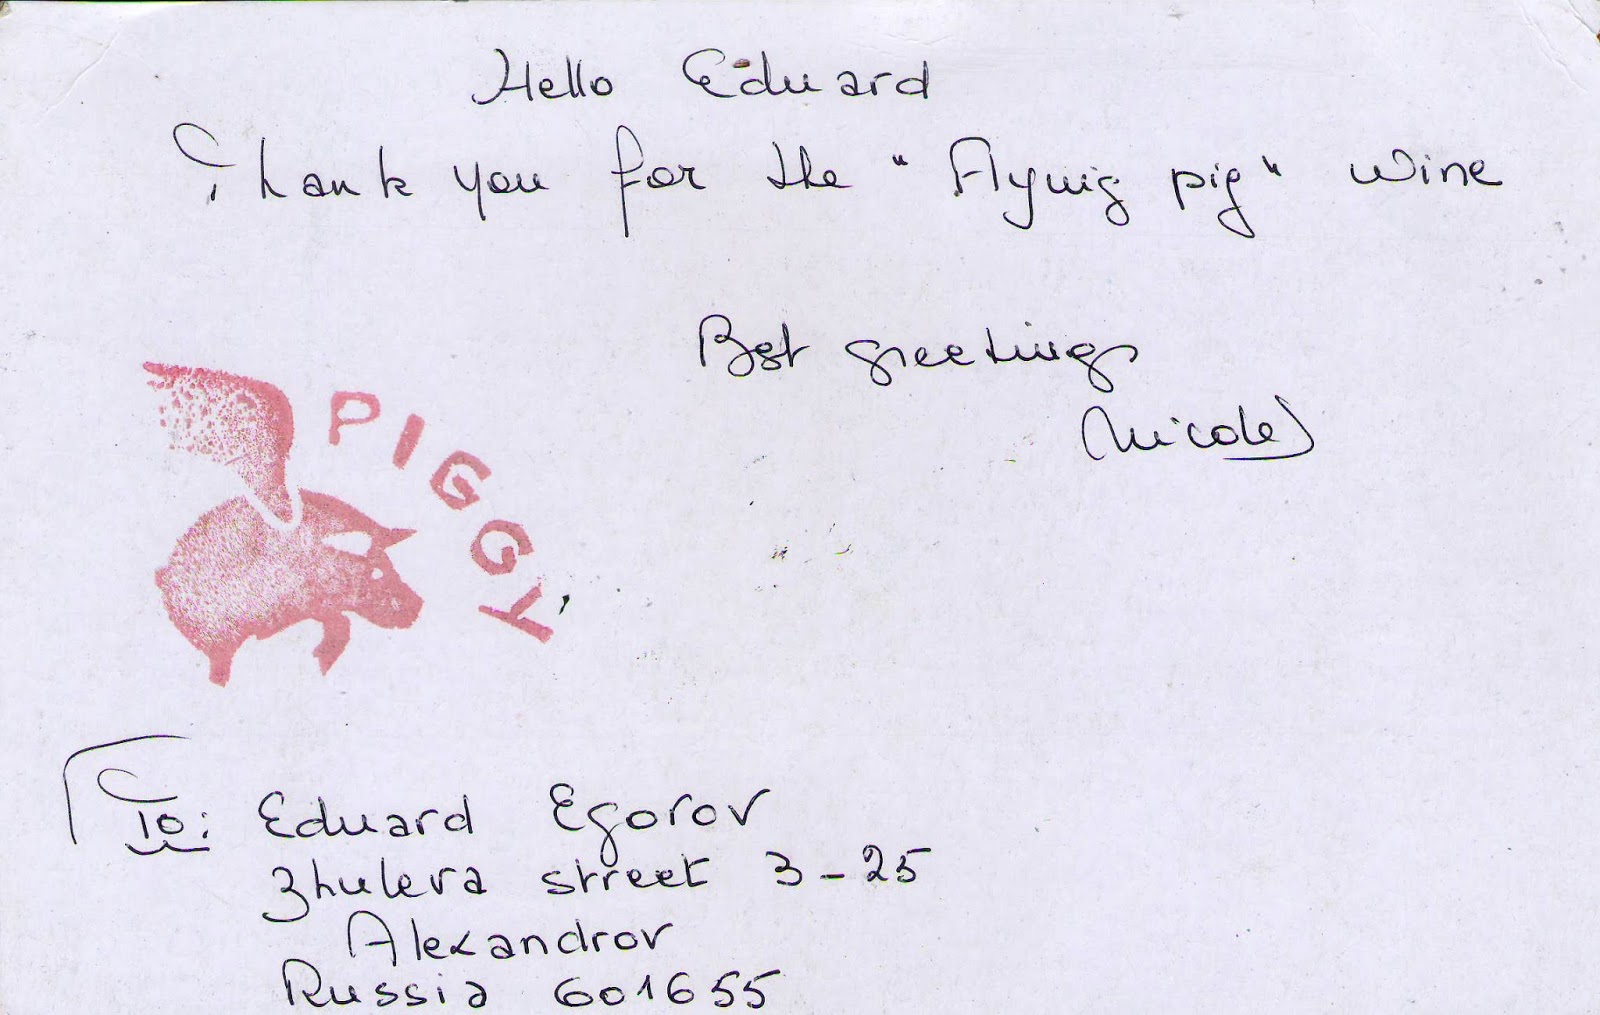 Hello Eduard
Thank you for the "Flying pig" wine
Best greetings
Nicole
PIGGY
To: Eduard Egorov
Zhuleva street 3-25
Alexandrov
Russia 601655